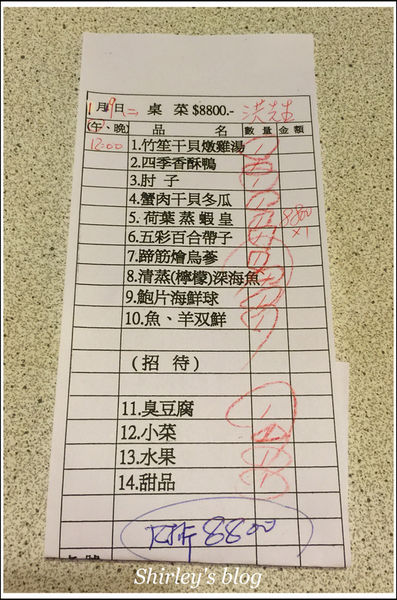 1月19日(二) 桌 菜 $8800.- 洪先生
(午、晚) 品 名 數 量 金 額
12:00 1.竹笙干貝燉雞湯
2.四季香酥鴨
3.肘 子
4.蟹肉干貝冬瓜
5.荷葉蒸蝦皇 8800
6.五彩百合帶子 x1
7.蹄筋燴烏蔘
8.清蒸(檸檬)深海魚
9.鮑片海鮮球
10.魚、羊双鮮
(招 待)
11.臭豆腐
12.小菜
13.水果
14.甜品
8800
Shirley's blog